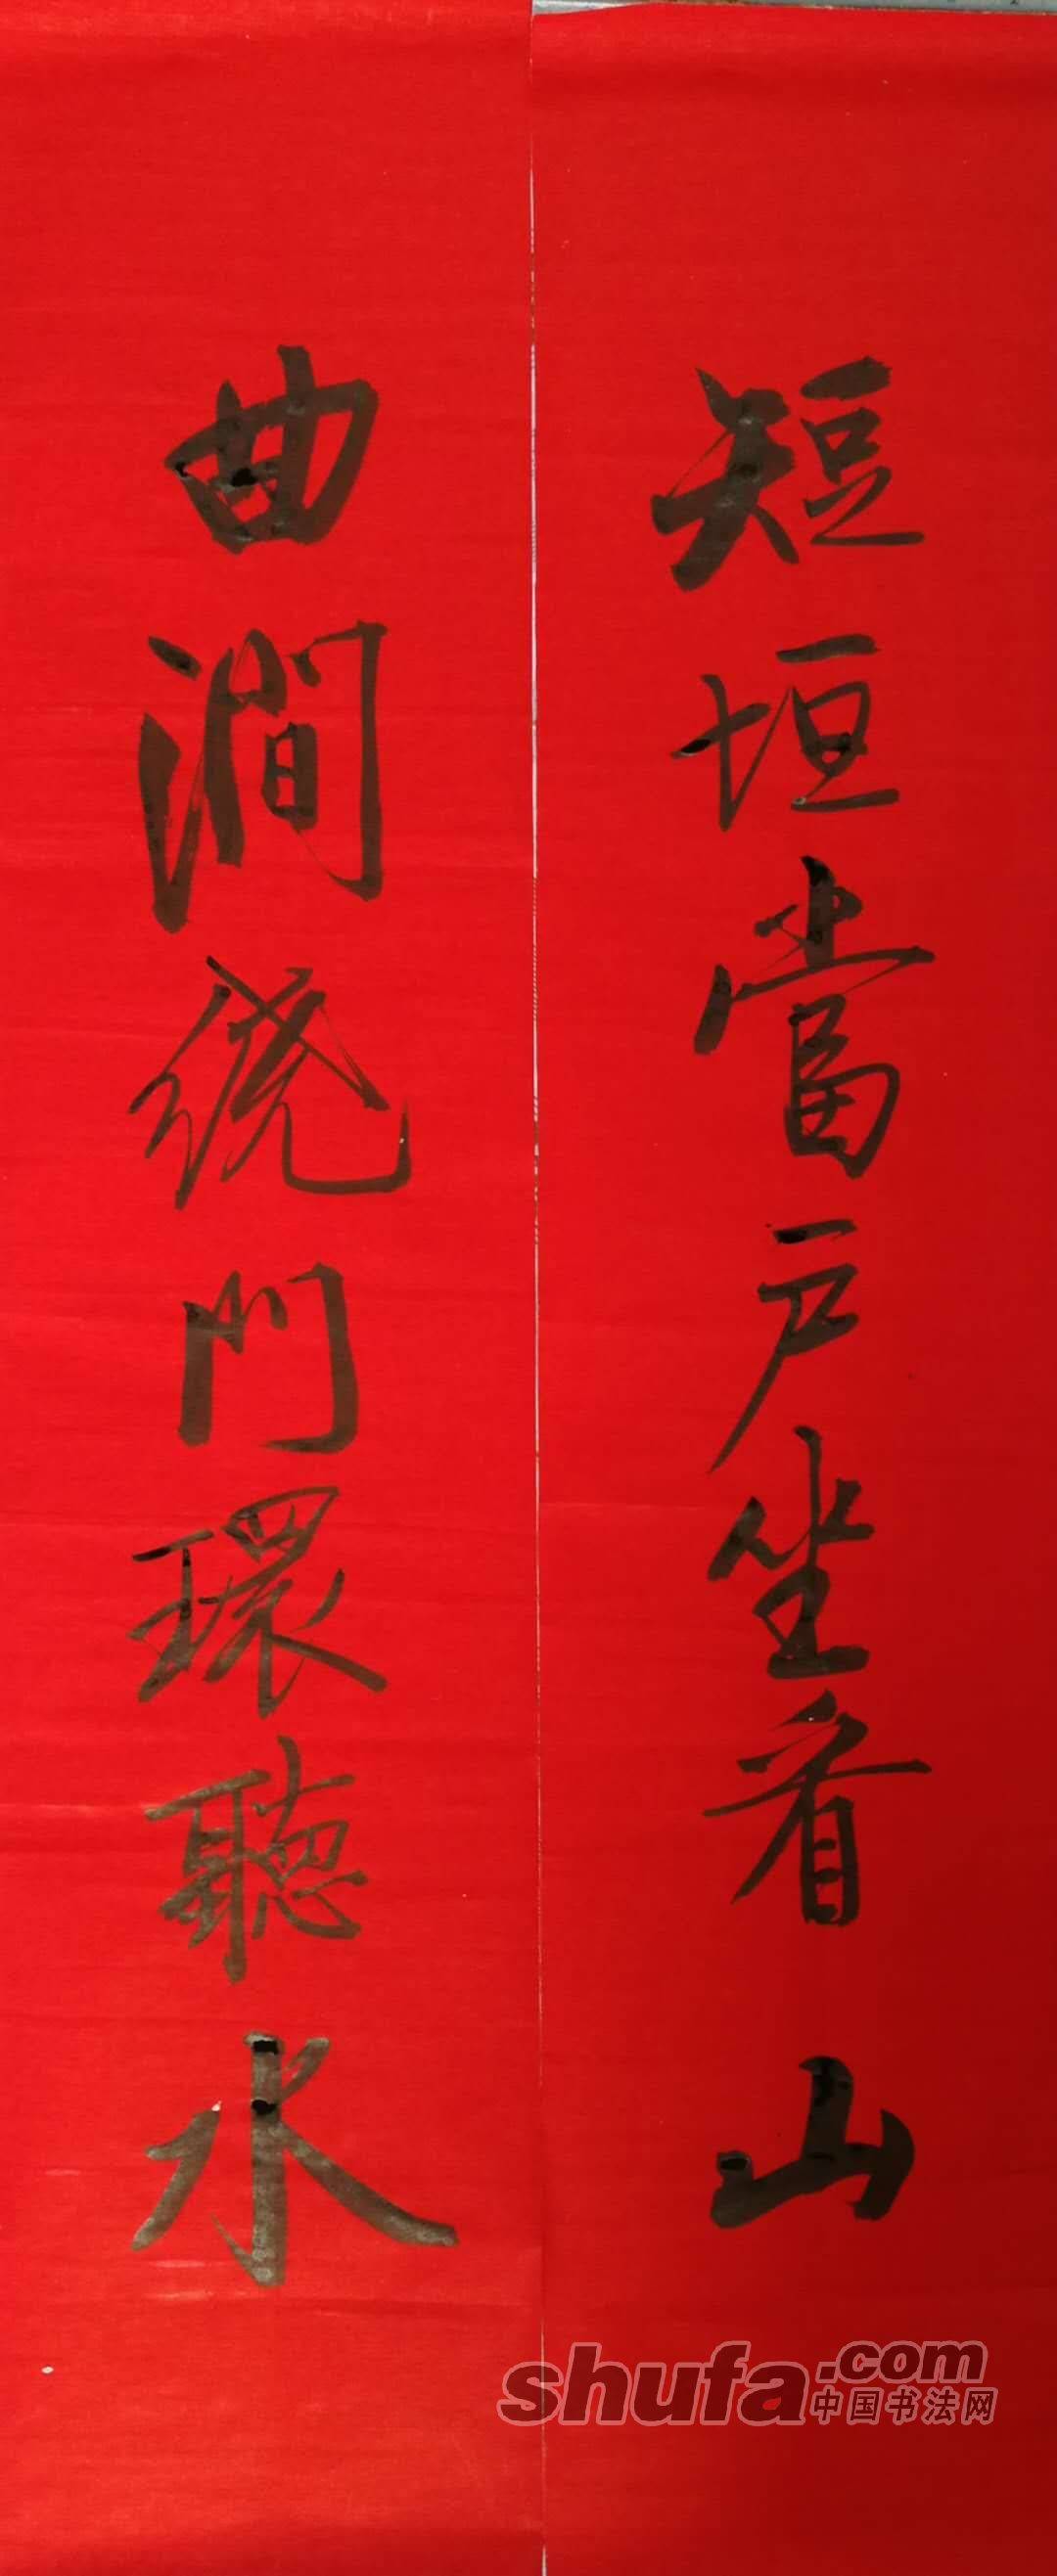 短垣當戶坐看山
曲澗繞門環聽水
shufa.com
中国书法网